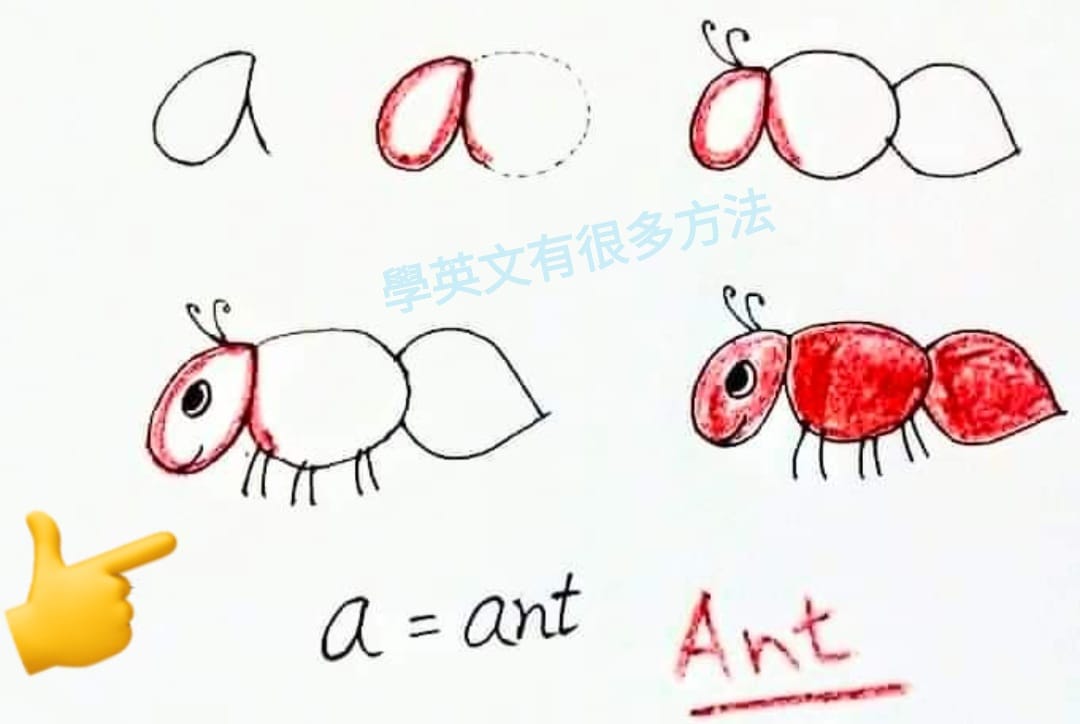 a
a
a
學英文有很多方法
a = ant
Ant